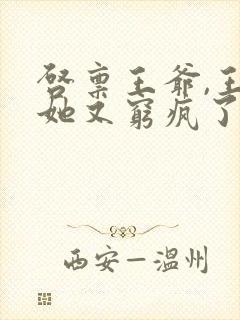 启禀王爷,王
她又窮疯了
西安—温州